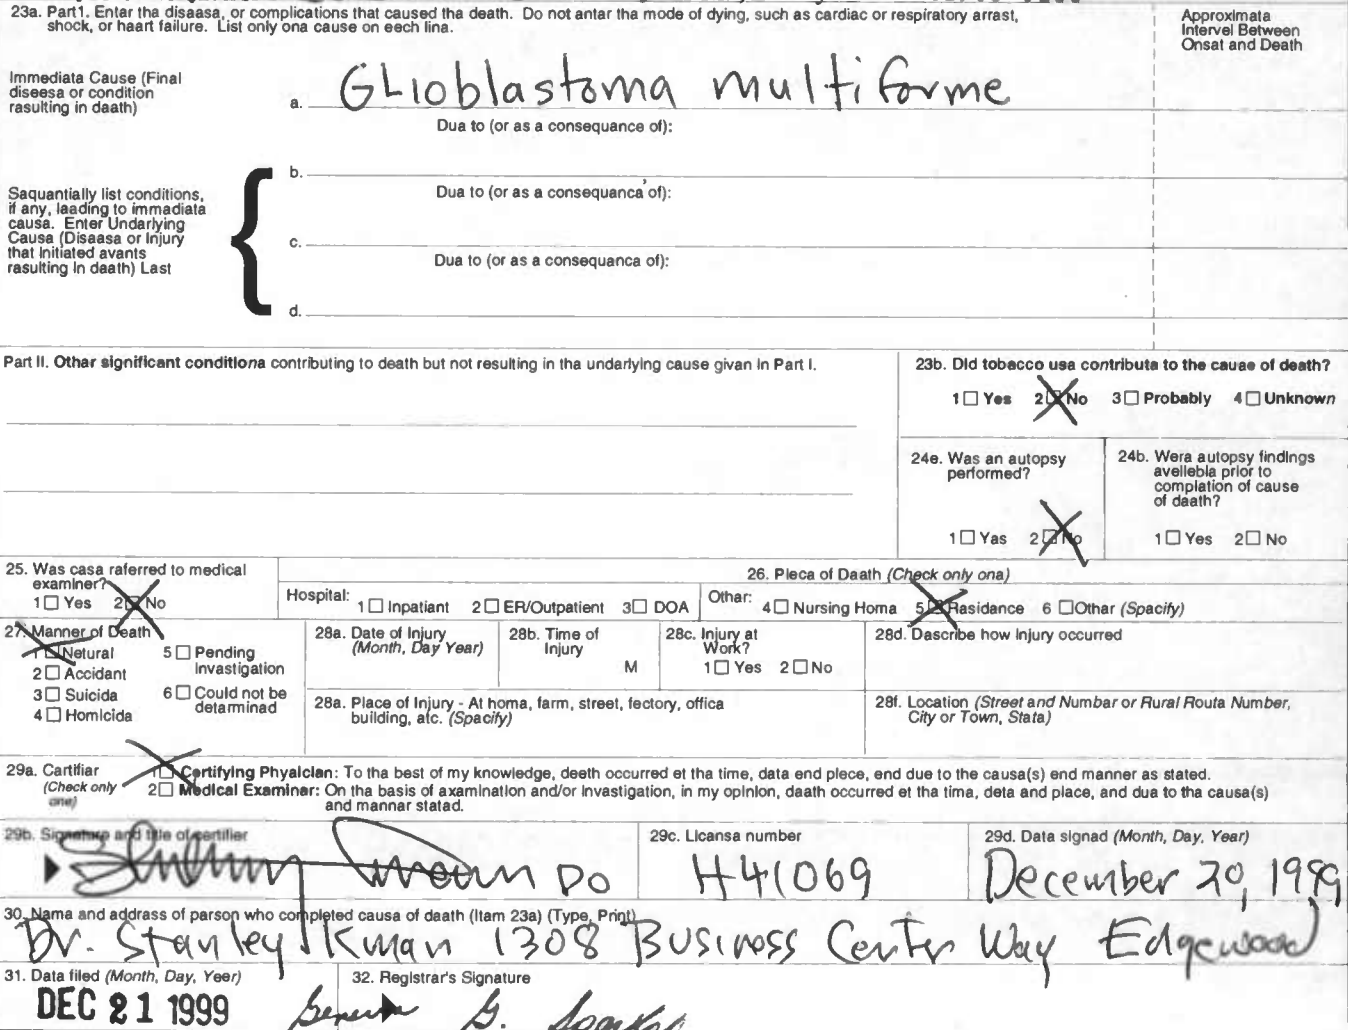 23a. Part1. Enter tha disaasa, or complications that caused tha death. Do not antar tha mode of dying, such as cardiac or respiratory arrast,
shock, or haart failure. List only ona cause on eech lina.
Approximata
Intervel Between
Onsat and Death
Immediata Cause (Final
diseesa or condition
rasulting in daath)
a. GLioblastoma multiforme
Dua to (or as a consequance of):
b.
Dua to (or as a consequanca of):
Saquantially list conditions,
if any, laading to immadiata
causa. Enter Undarlying
Causa (Disaasa or Injury
that initiated avants
rasulting in daath) Last
c.
Dua to (or as a consequanca of):
d.
Part II. Othar significant conditiona contributing to death but not resulting in tha underlying cause givan in Part I.
23b. Did tobacco usa contributa to the cauae of death?
1 Yes 2 No 3 Probably 4 Unknown
24e. Was an autopsy
performed?
1 Yas 2 No
24b. Wera autopsy findings
avellebla prior to
complation of cause
of daath?
1 Yes 2 No
25. Was casa raferred to medical
examiner?
1 Yes 2 No
26. Pleca of Daath (Check only ona)
Hospital: 1 Inpatiant 2 ER/Outpatient 3 DOA Othar: 4 Nursing Homa 5 Rasidance 6 Other (Spacify)
27. Manner of Death
1 Netural
2 Accidant
3 Suicida
4 Homicida
5 Pending
Invastigation
6 Could not be
detarminad
28a. Date of Injury
(Month, Day Year)
28b. Time of
Injury
M
28c. Injury at
Work?
1 Yes 2 No
28d. Dascribe how Injury occurred
28a. Place of Injury - At homa, farm, street, fectory, offica
building, atc. (Spacify)
28f. Location (Street and Numbar or Rural Routa Number,
City or Town, Stata)
29a. Cartifiar
(Check only
one)
1 Certifying Phyalcian: To tha best of my knowledge, deeth occurred et tha time, data end plece, end due to the causa(s) end manner as stated.
2 Medical Examiner: On tha basis of axamination and/or invastigation, in my opinion, daath occurred et tha tima, deta and place, and due to tha causa(s)
and mannar statad.
29b. Signature and title of certifier
DO
29c. Licansa number
H41069
29d. Data signad (Month, Day, Year)
December 20, 1999
30. Name and address of parson who completed causa of death (Itam 23a) (Type, Print)
Dr. Stanley Kman 1308 Business Center Way Edgewood
31. Data filed (Month, Day, Year)
DEC 21 1999
32. Registrar's Signature